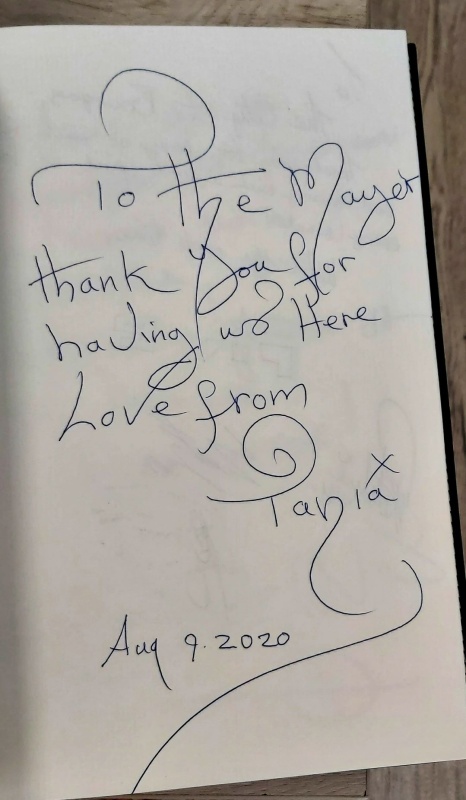 To The Mayer
thank you for
having us Here
Love from
Tania x
Aug 9. 2020